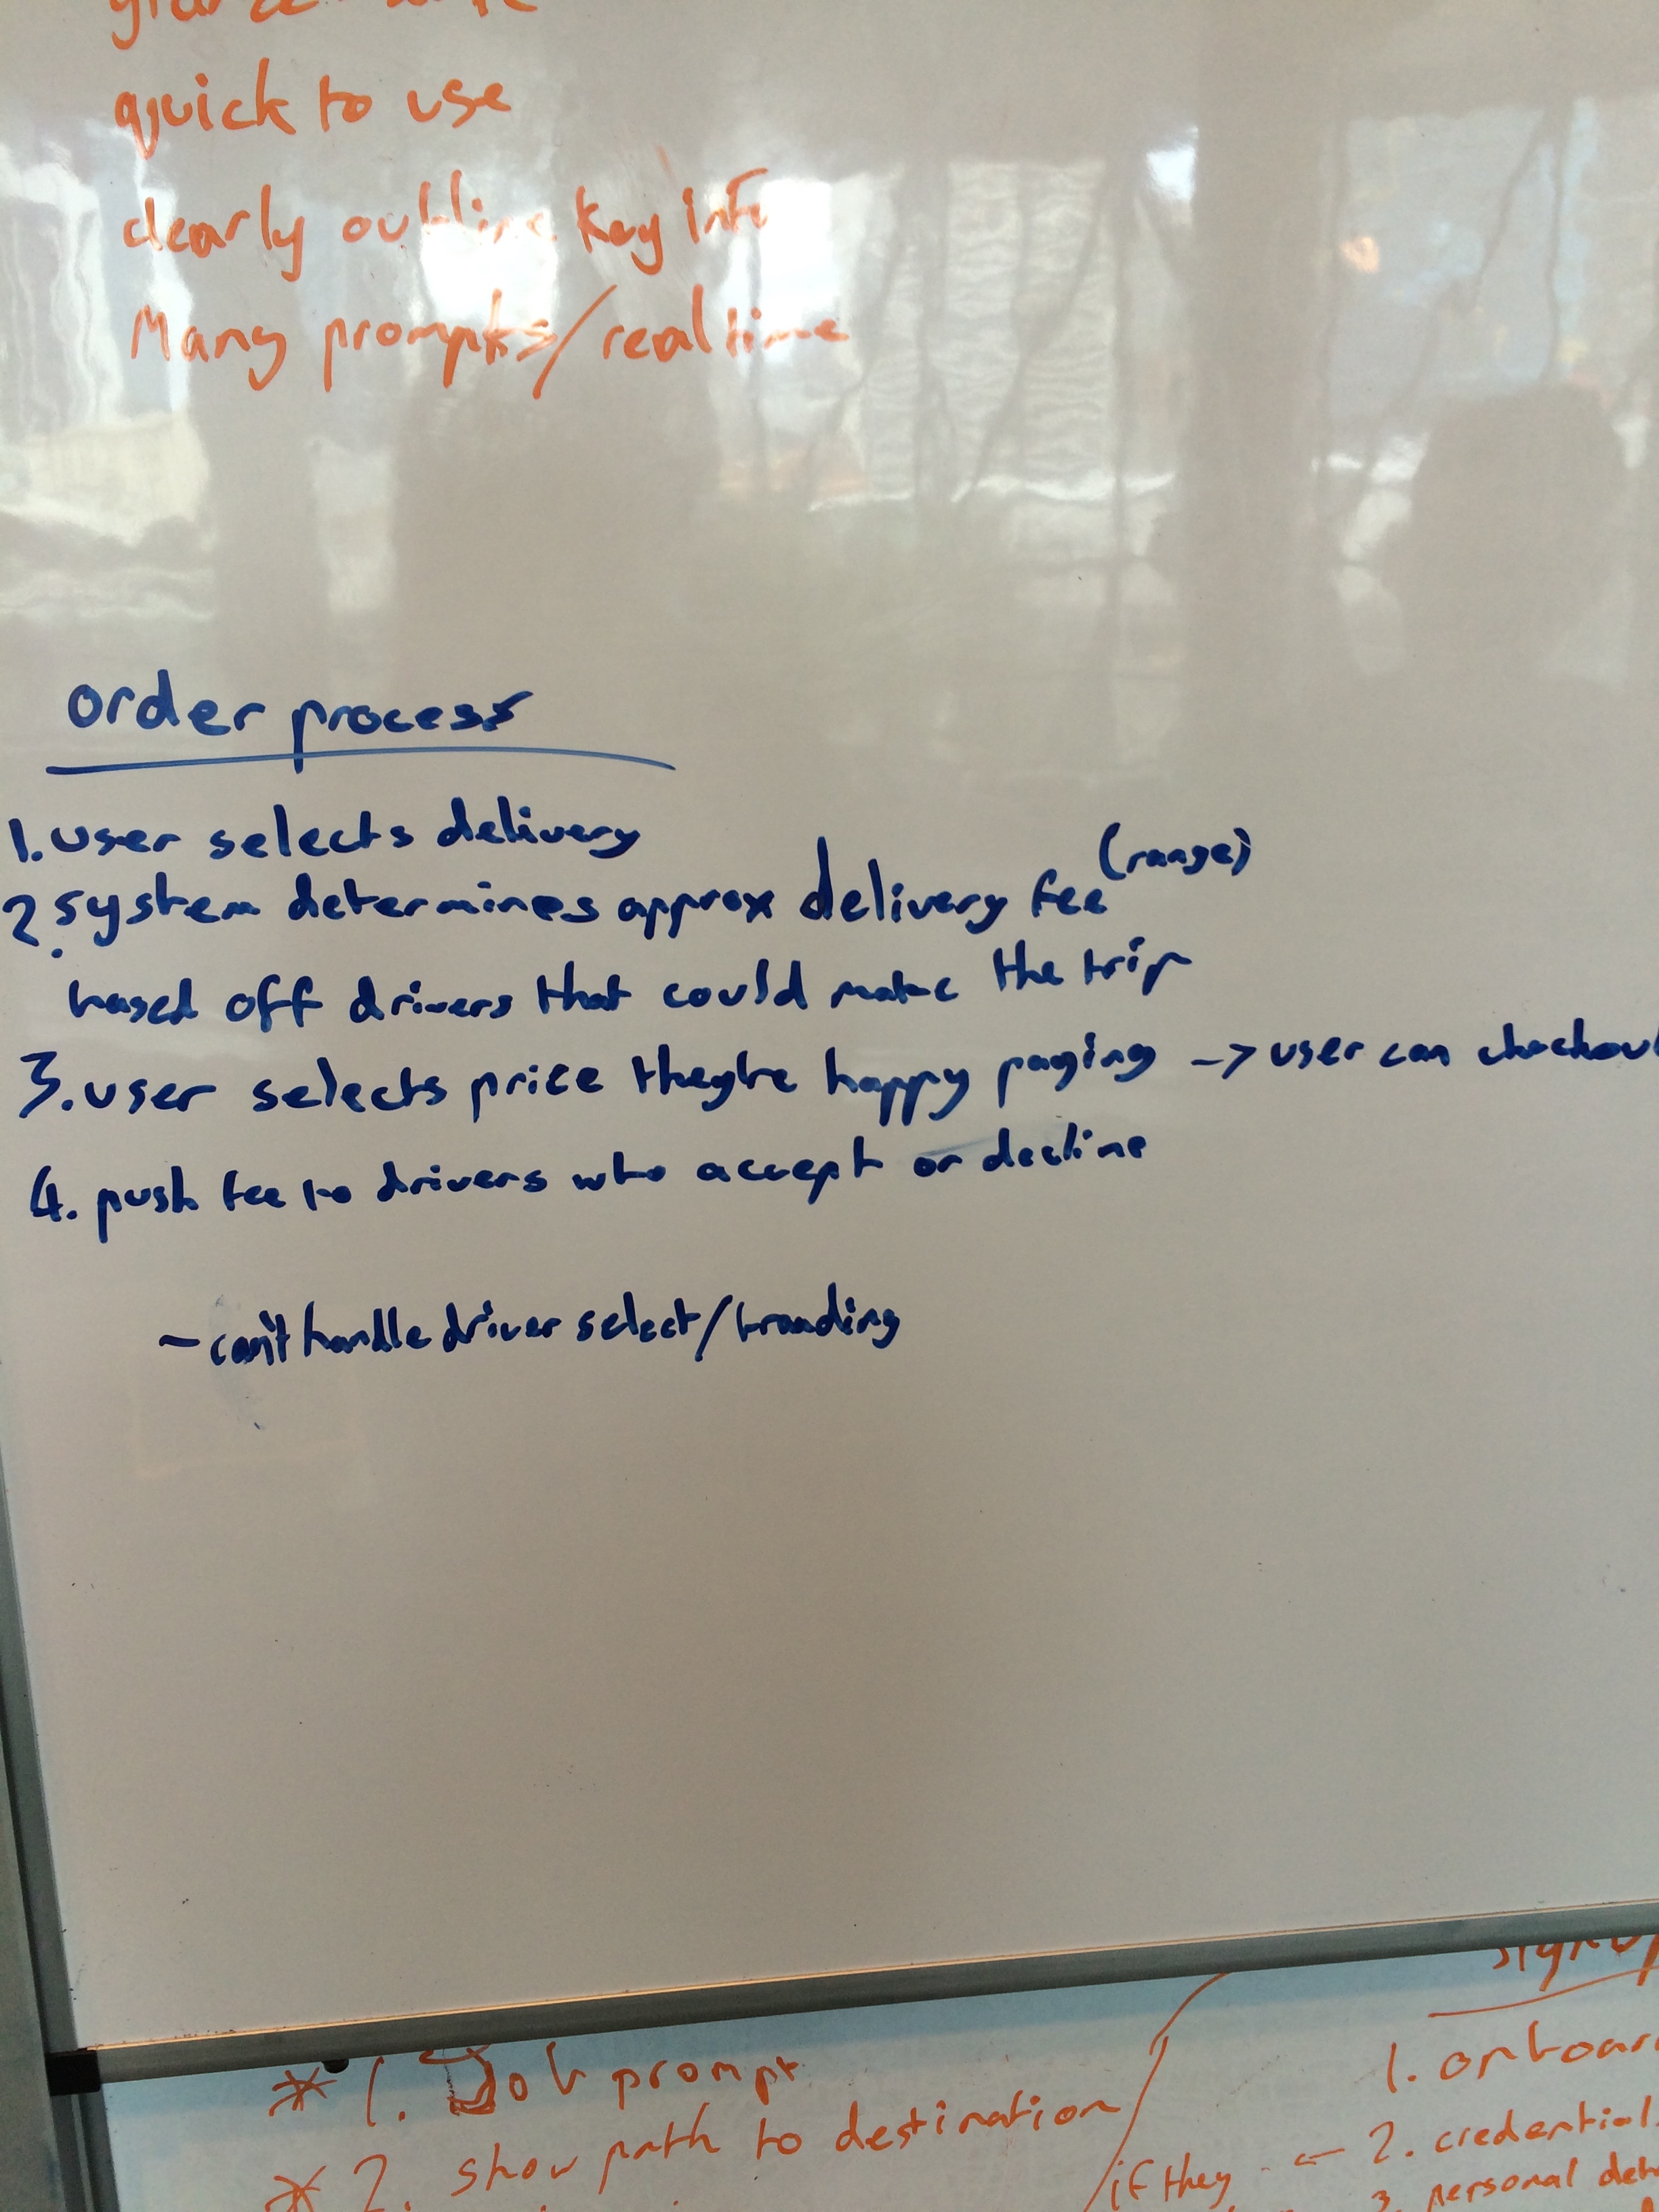 quick to use
clearly outline key info
Many prompts/realtime
order process
1. user selects delivery
2. system determines approx delivery fee (range)
based off drivers that could make the trip
3. user selects price they're happy paying -> user can checkout
4. push fee to drivers who accept or decline
- can't handle driver select/branding
signup
* 1. Job prompt
1. onboar
* 2. show path to destination
if they ← 2. credential
3. personal det